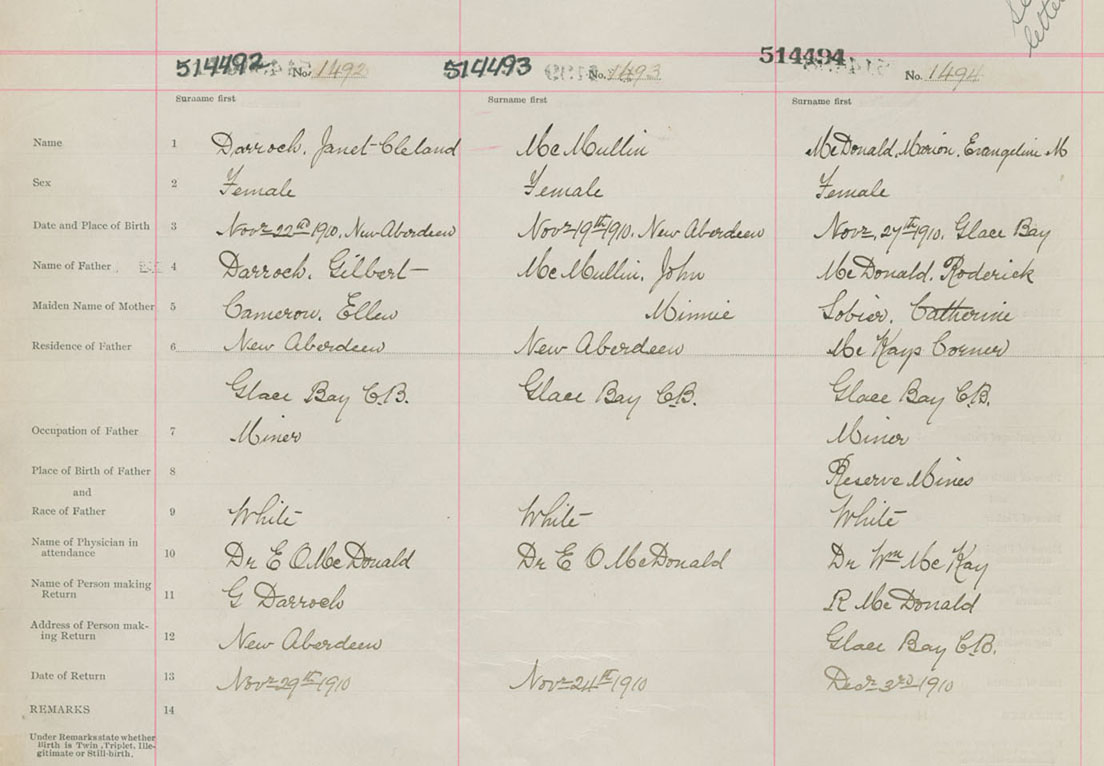 See
letter
514492 No. 1492 514493 No. 1493 514494 No. 1494
Surname first Surname first Surname first
Name 1 Darroch, Janet Cleland McMullin McDonald, Marion, Evangeline M
Sex 2 Female Female Female
Date and Place of Birth 3 Novr 22nd 1910, New Aberdeen Novr 19th 1910, New Aberdeen Novr, 27th 1910, Glace Bay
Name of Father 4 Darroch, Gilbert McMullin, John McDonald, Roderick
Maiden Name of Mother 5 Cameron, Ellen Minnie Sobier, Catherine
Residence of Father 6 New Aberdeen New Aberdeen McKays Corner
Glace Bay C.B. Glace Bay C.B. Glace Bay C.B.
Occupation of Father 7 Miner Miner
Place of Birth of Father 8 Reserve Mines
and
Race of Father 9 White White White
Name of Physician in
attendance 10 Dr E O McDonald Dr E O McDonald Dr Wm McKay
Name of Person making
Return 11 G Darroch R McDonald
Address of Person mak-
ing Return 12 New Aberdeen Glace Bay C.B.
Date of Return 13 Novr 29th 1910 Novr 24th 1910 Decr 3rd 1910
REMARKS 14
Under Remarks state whether
Birth is Twin, Triplet, Ille-
gitimate or Still-birth.